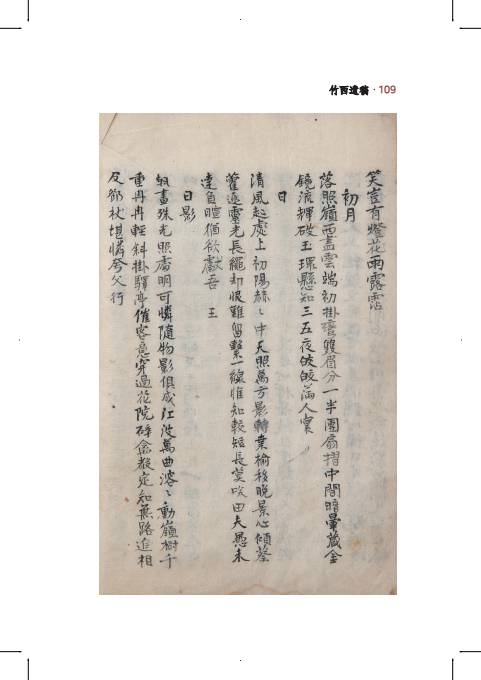 竹西遺稿 · 109
笑豈有燈花雨露霑
初月
落照嶺西盡雲端初掛雙眉分一半團扇摺中間暗暈藏金
鏡流輝破玉環懸知三五夜皎皎滿人寰
日
清風起處上初陽赫〻中天照萬方影轉桑榆移晚景心傾葵
藿逐靈光長繩却恨難留繫一線惟知較短長莫咲田夫愚未
達負暄猶欲獻吾 王
日影
畫珠光照明可憐隨物影俱成江波萬曲溶〻動嶺樹千
重冉冉輕斜掛驛亭催客意穿過花院碎禽聲定知無路追相
反杖堪憐夸父行